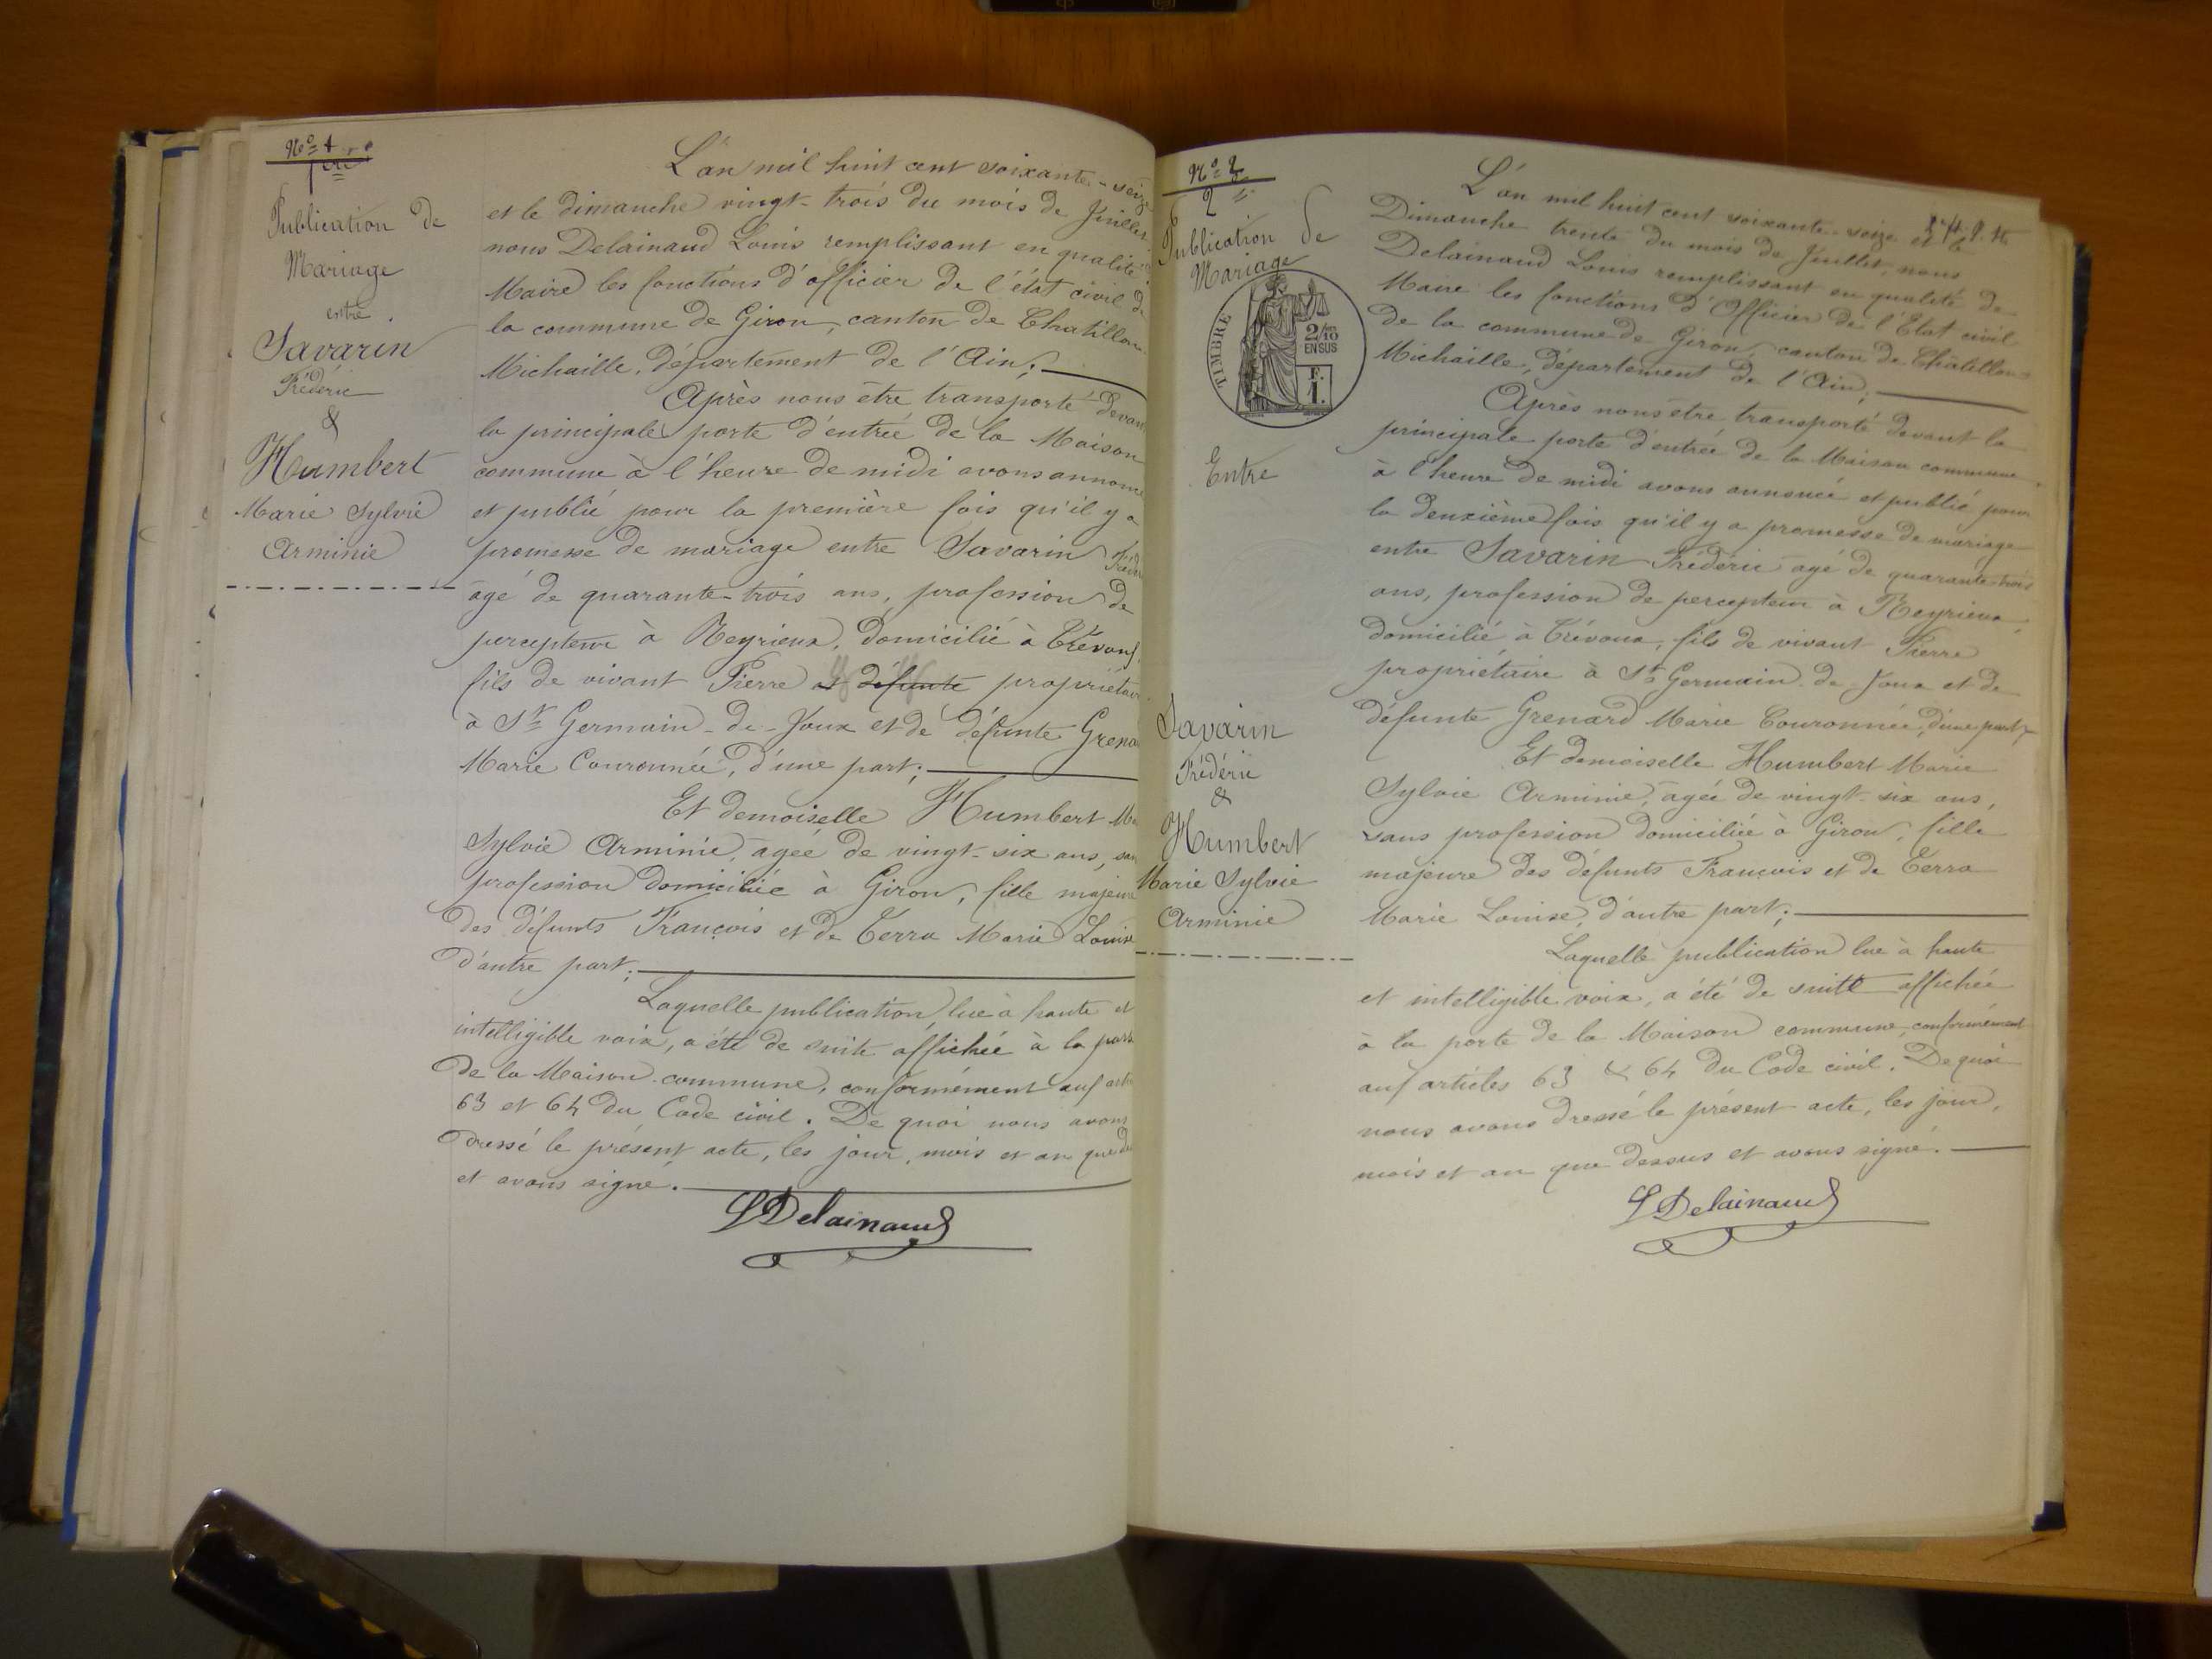 Nº 1
1ère
Publication de
Mariage
entre
Savarin
Frédéric
&
Humbert
Marie Sylvie
Arminie
L'an mil huit cent soixante-seize
et le dimanche vingt-trois du mois de Juillet
nous Delainaud Louis remplissant en qualité de
Maire les fonctions d'officier de l'état civil de
la commune de Giron, canton de Chatillon
Michaille, département de l'Ain;
Après nous être transporté devant
la principale porte d'entrée de la Maison
commune à l'heure de midi avons annoncé
et publié pour la première fois qu'il y a
promesse de mariage entre Savarin Frédéric
âgé de quarante-trois ans, profession de
percepteur à Reyrieux, domicilié à Trévoux,
fils de vivant Pierre et défunte propriétaire
à St Germain-de-Joux et de défunte Grenard
Marie Couronnée, d'une part;
Et demoiselle Humbert Marie
Sylvie Arminie, agée de vingt-six ans, sans
profession domiciliée à Giron, fille majeure
des défunts François et de Terra Marie Louise
d'autre part;
Laquelle publication, lue à haute et
intelligible voix, a été de suite affichée à la porte
de la Maison commune, conformément aux articles
63 et 64 du Code civil. De quoi nous avons
dressé le présent acte, les jour, mois et an que dessus
et avons signé.
L Delainaud
Nº 2
2
Publication de
Mariage
TIMBRE
2/10
EN SUS
F.
1.
Entre
Savarin
Frédéric
&
Humbert
Marie Sylvie
Arminie
L'an mil huit cent soixante-seize et le
Dimanche trente du mois de Juillet, nous
Delainaud Louis remplissant en qualité de
Maire les fonctions d'Officier de l'Etat civil
de la commune de Giron, canton de Châtillon
Michaille, département de l'Ain;
Après nous être transporté devant la
principale porte d'entrée de la Maison commune
à l'heure de midi avons annoncé et publié pour
la deuxième fois qu'il y a promesse de mariage
entre Savarin Frédéric agé de quarante-trois
ans, profession de percepteur à Reyrieux,
domicilié à Trévoux, fils de vivant Pierre
propriétaire à St Germain-de-Joux et de
défunte Grenard Marie Couronnée, d'une part;
Et demoiselle Humbert Marie
Sylvie Arminie, agée de vingt-six ans,
sans profession domiciliée à Giron, fille
majeure des défunts François et de Terra
Marie Louise, d'autre part;
Laquelle publication lue à haute
et intelligible voix, a été de suite affichée
à la porte de la Maison commune, conformément
aux articles 63 & 64 du Code civil. De quoi
nous avons dressé le présent acte, les jour,
mois et an que dessus et avons signé.
L Delainaud